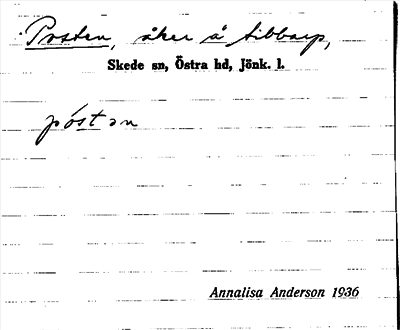 Posten, åker å Libbarp,
Skede sn, Östra hd, Jönk. l.
póstən
Annalisa Anderson 1936